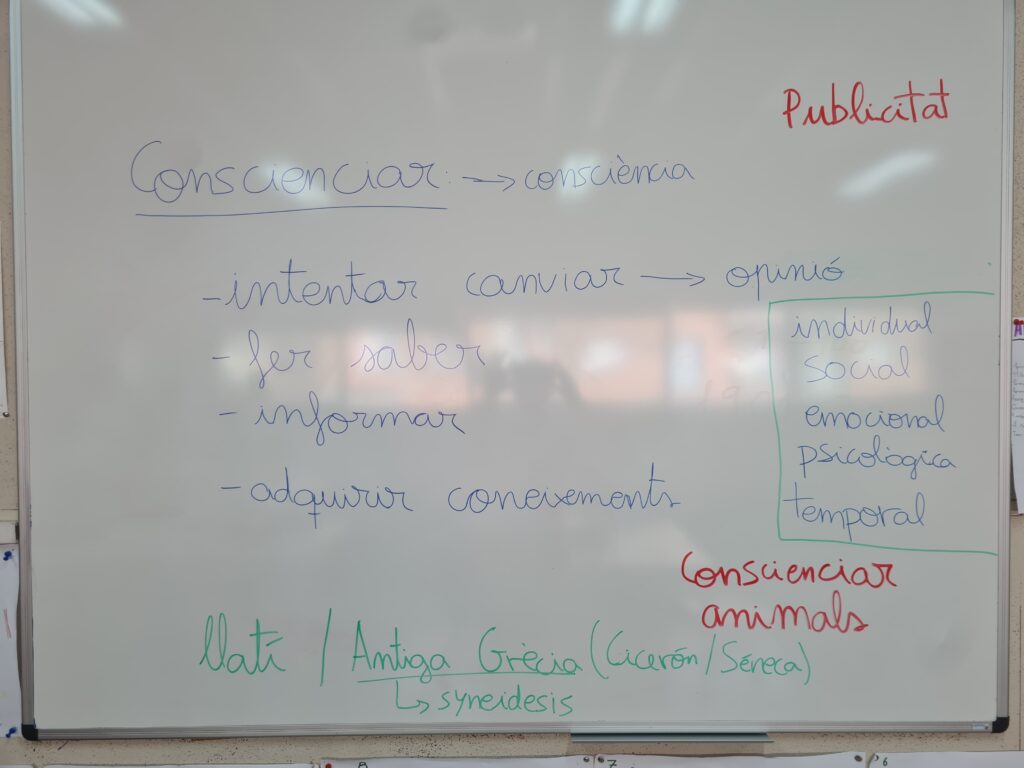 Publicitat
Conscienciar: → consciència
- intentar canviar → opinió
- fer saber
- informar
- adquirir coneixements
individual
social
emocional
psicològica
temporal
Conscienciar
animals
llatí / Antiga Grècia (Cicerón / Séneca)
↳ syneidesis
8
7
6